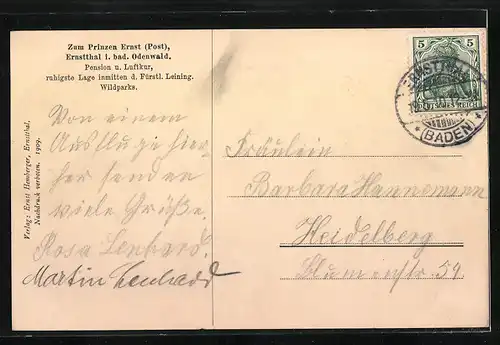 Zum Prinzen Ernst (Post),
Ernstthal i. bad. Odenwald.
Pension u. Luftkur,
ruhigste Lage inmitten d. Fürstl. Leining.
Wildparks.
Von einem
Ausfluge hier-
her senden
viele Grüße.
Rosa Lenhard.
Martin Lenhard
Verlag: Ernst Hemberger, Ernstthal.
Nachdruck verboten. 1909.
5 5
DEUTSCHES REICH
ERNSTTHAL
* (BADEN) *
Fräulein
Barbara Hannemann
Heidelberg
Blumenstr. 59.